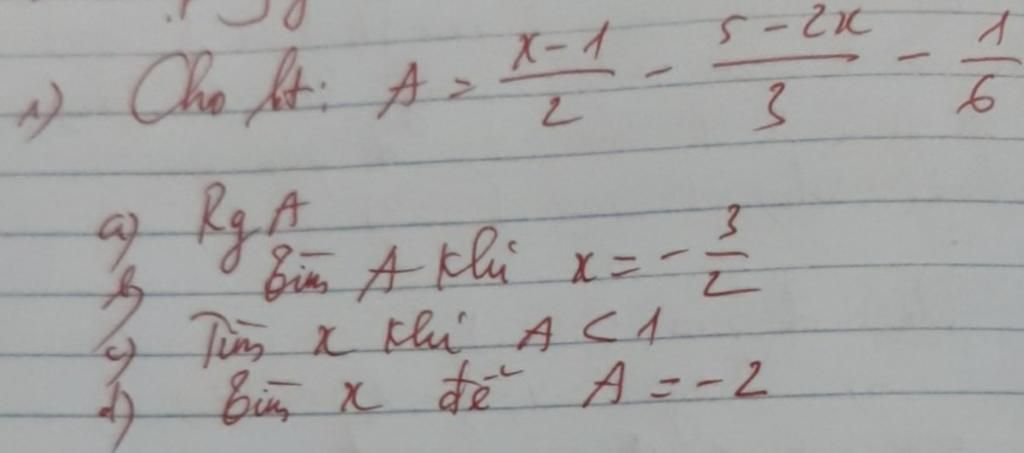 1) Cho bt: A = \frac{x-1}{2} - \frac{5-2x}{3} - \frac{1}{6}
a) Rg A
b) Tìm A khi x = -\frac{3}{2}
c) Tìm x khi A < 1
d) Tìm x để A = -2